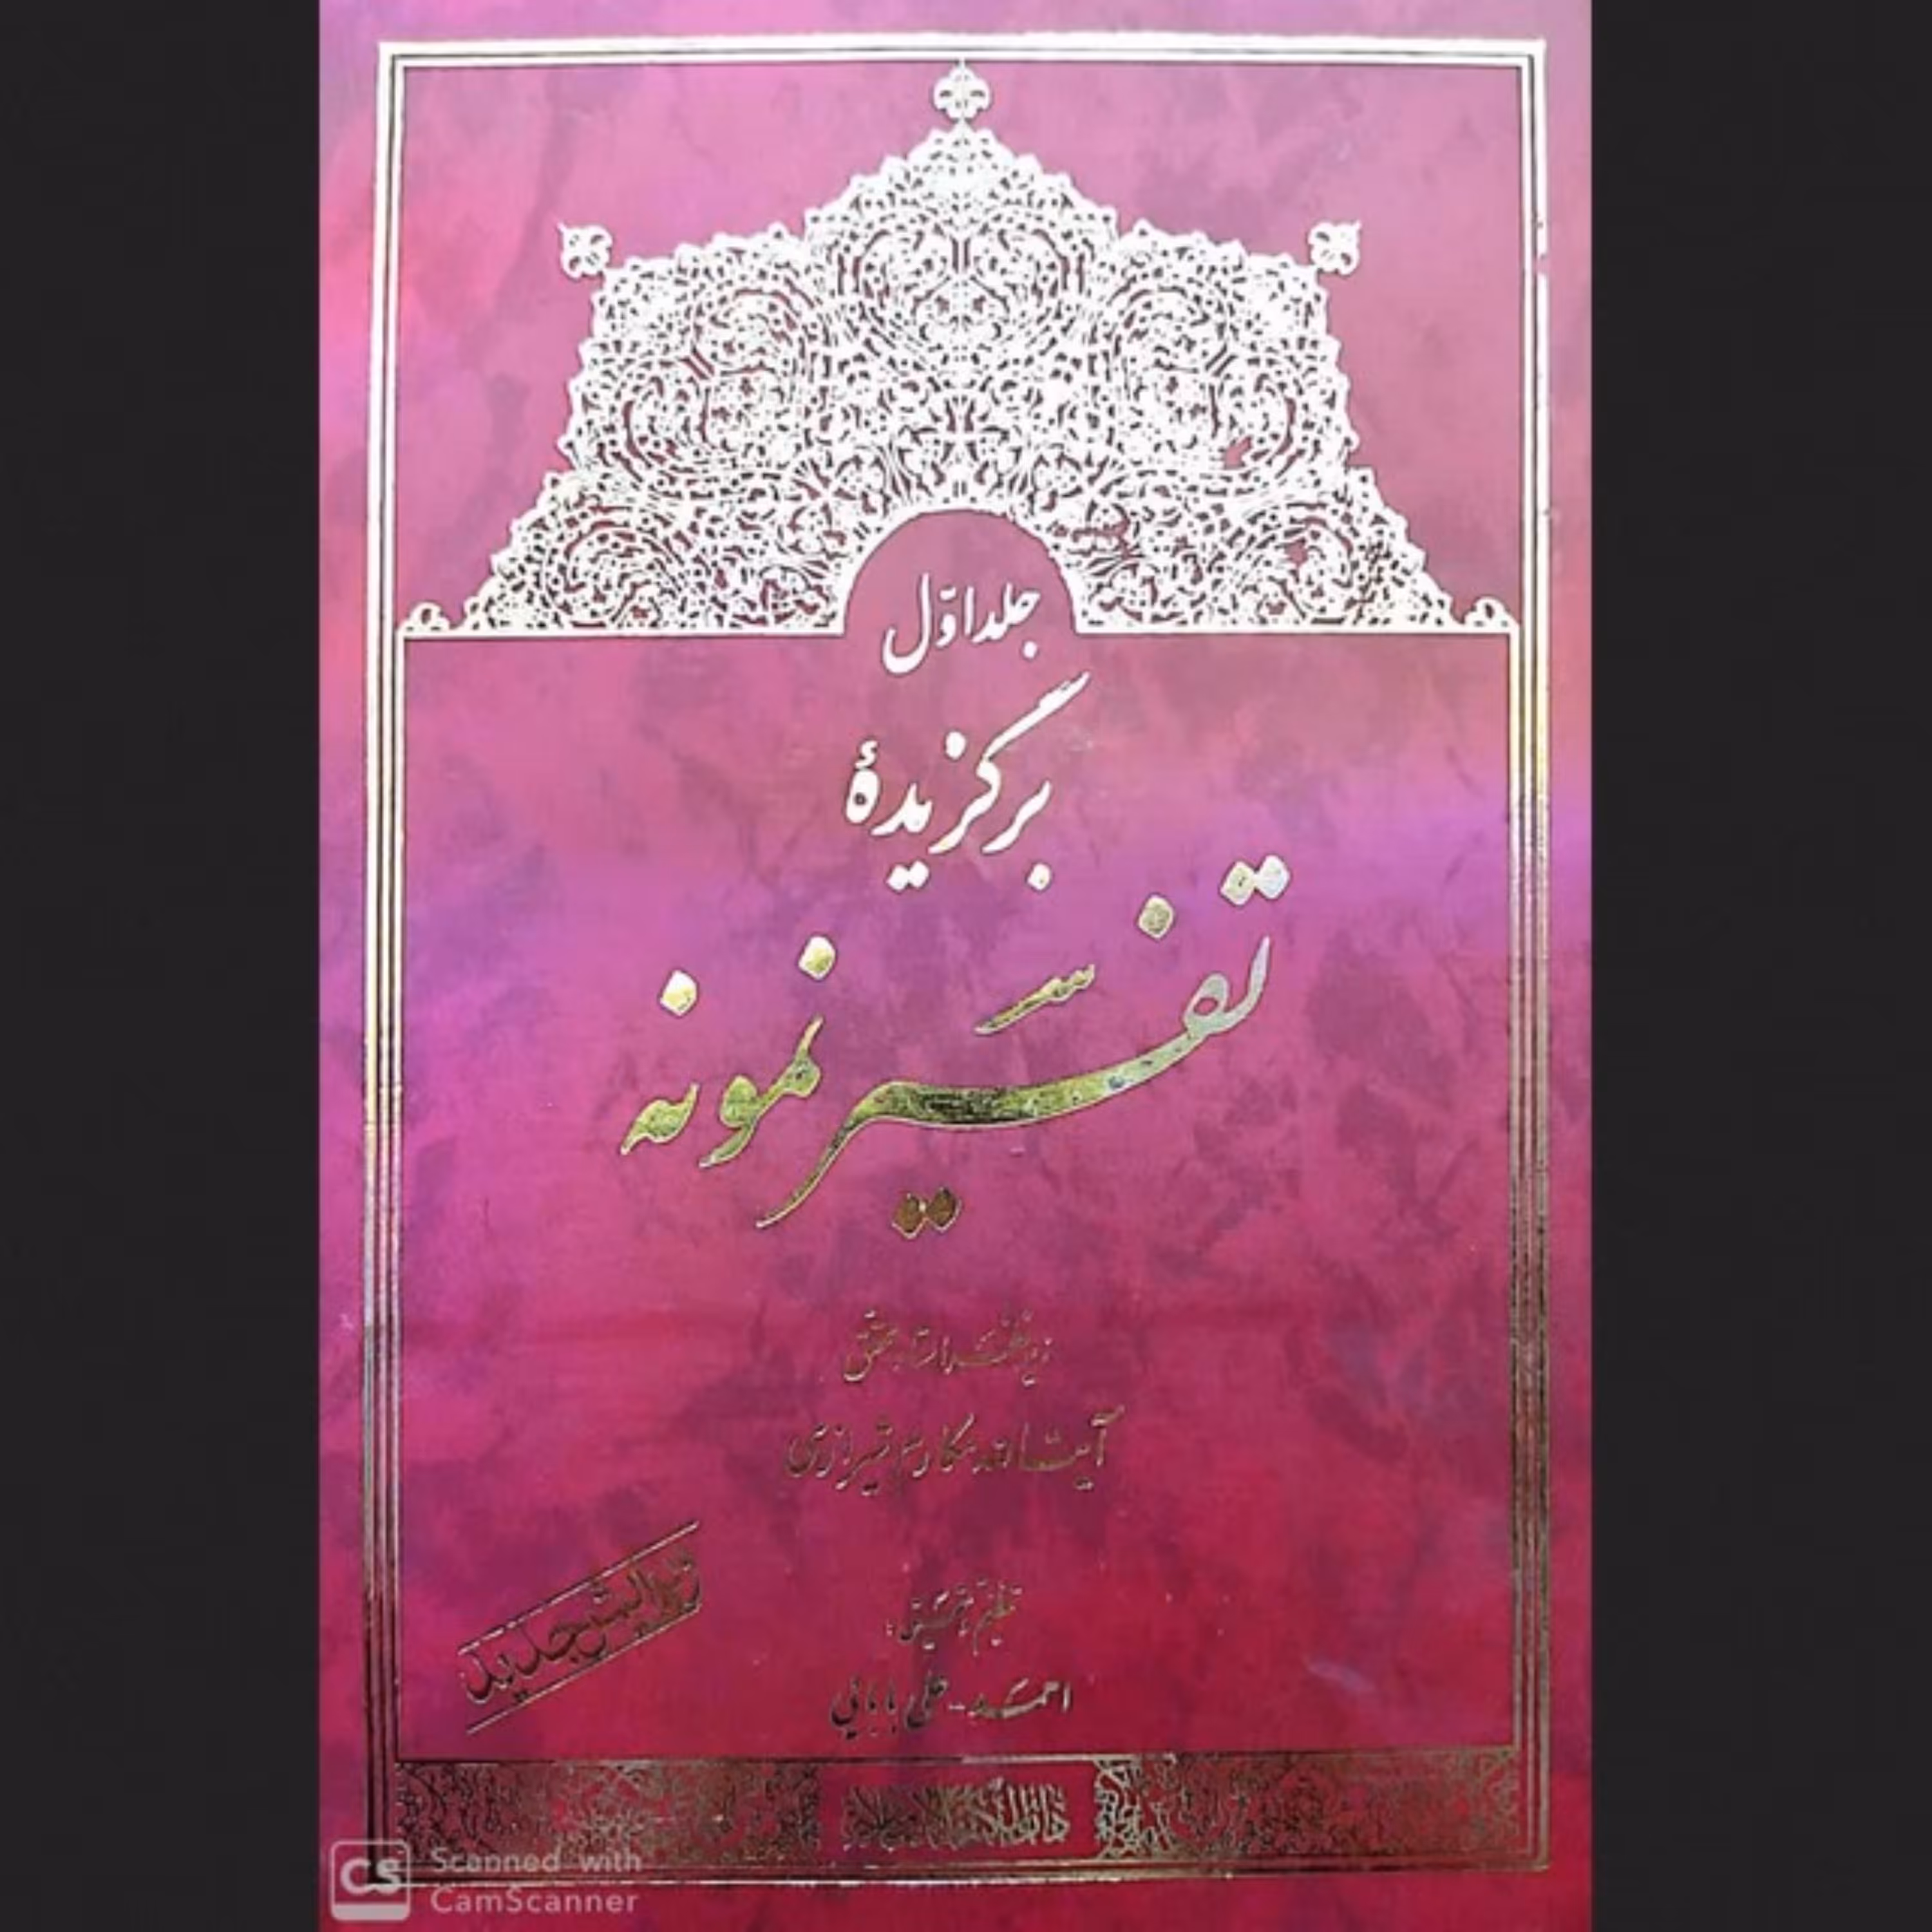 جلد اوّل
برگزیدهٔ
تفسیر نمونه
زیر نظر استاد محقق
آیت الله مکارم شیرازی
ویرایش جدید
تنظیم و تحقیق:
احمد - علی بابایی
دارالکتب الاسلامیه
CS Scanned with
CamScanner